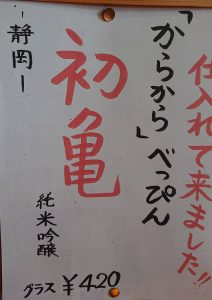 仕入れて来ました!!
「からから」べっぴん
初亀
－静岡－
純米吟醸
グラス ¥420